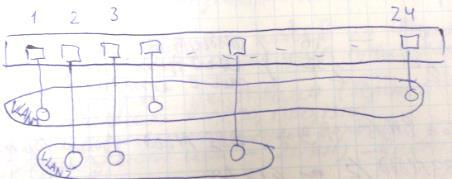 1 2 3 24
VLAN1
VLAN2